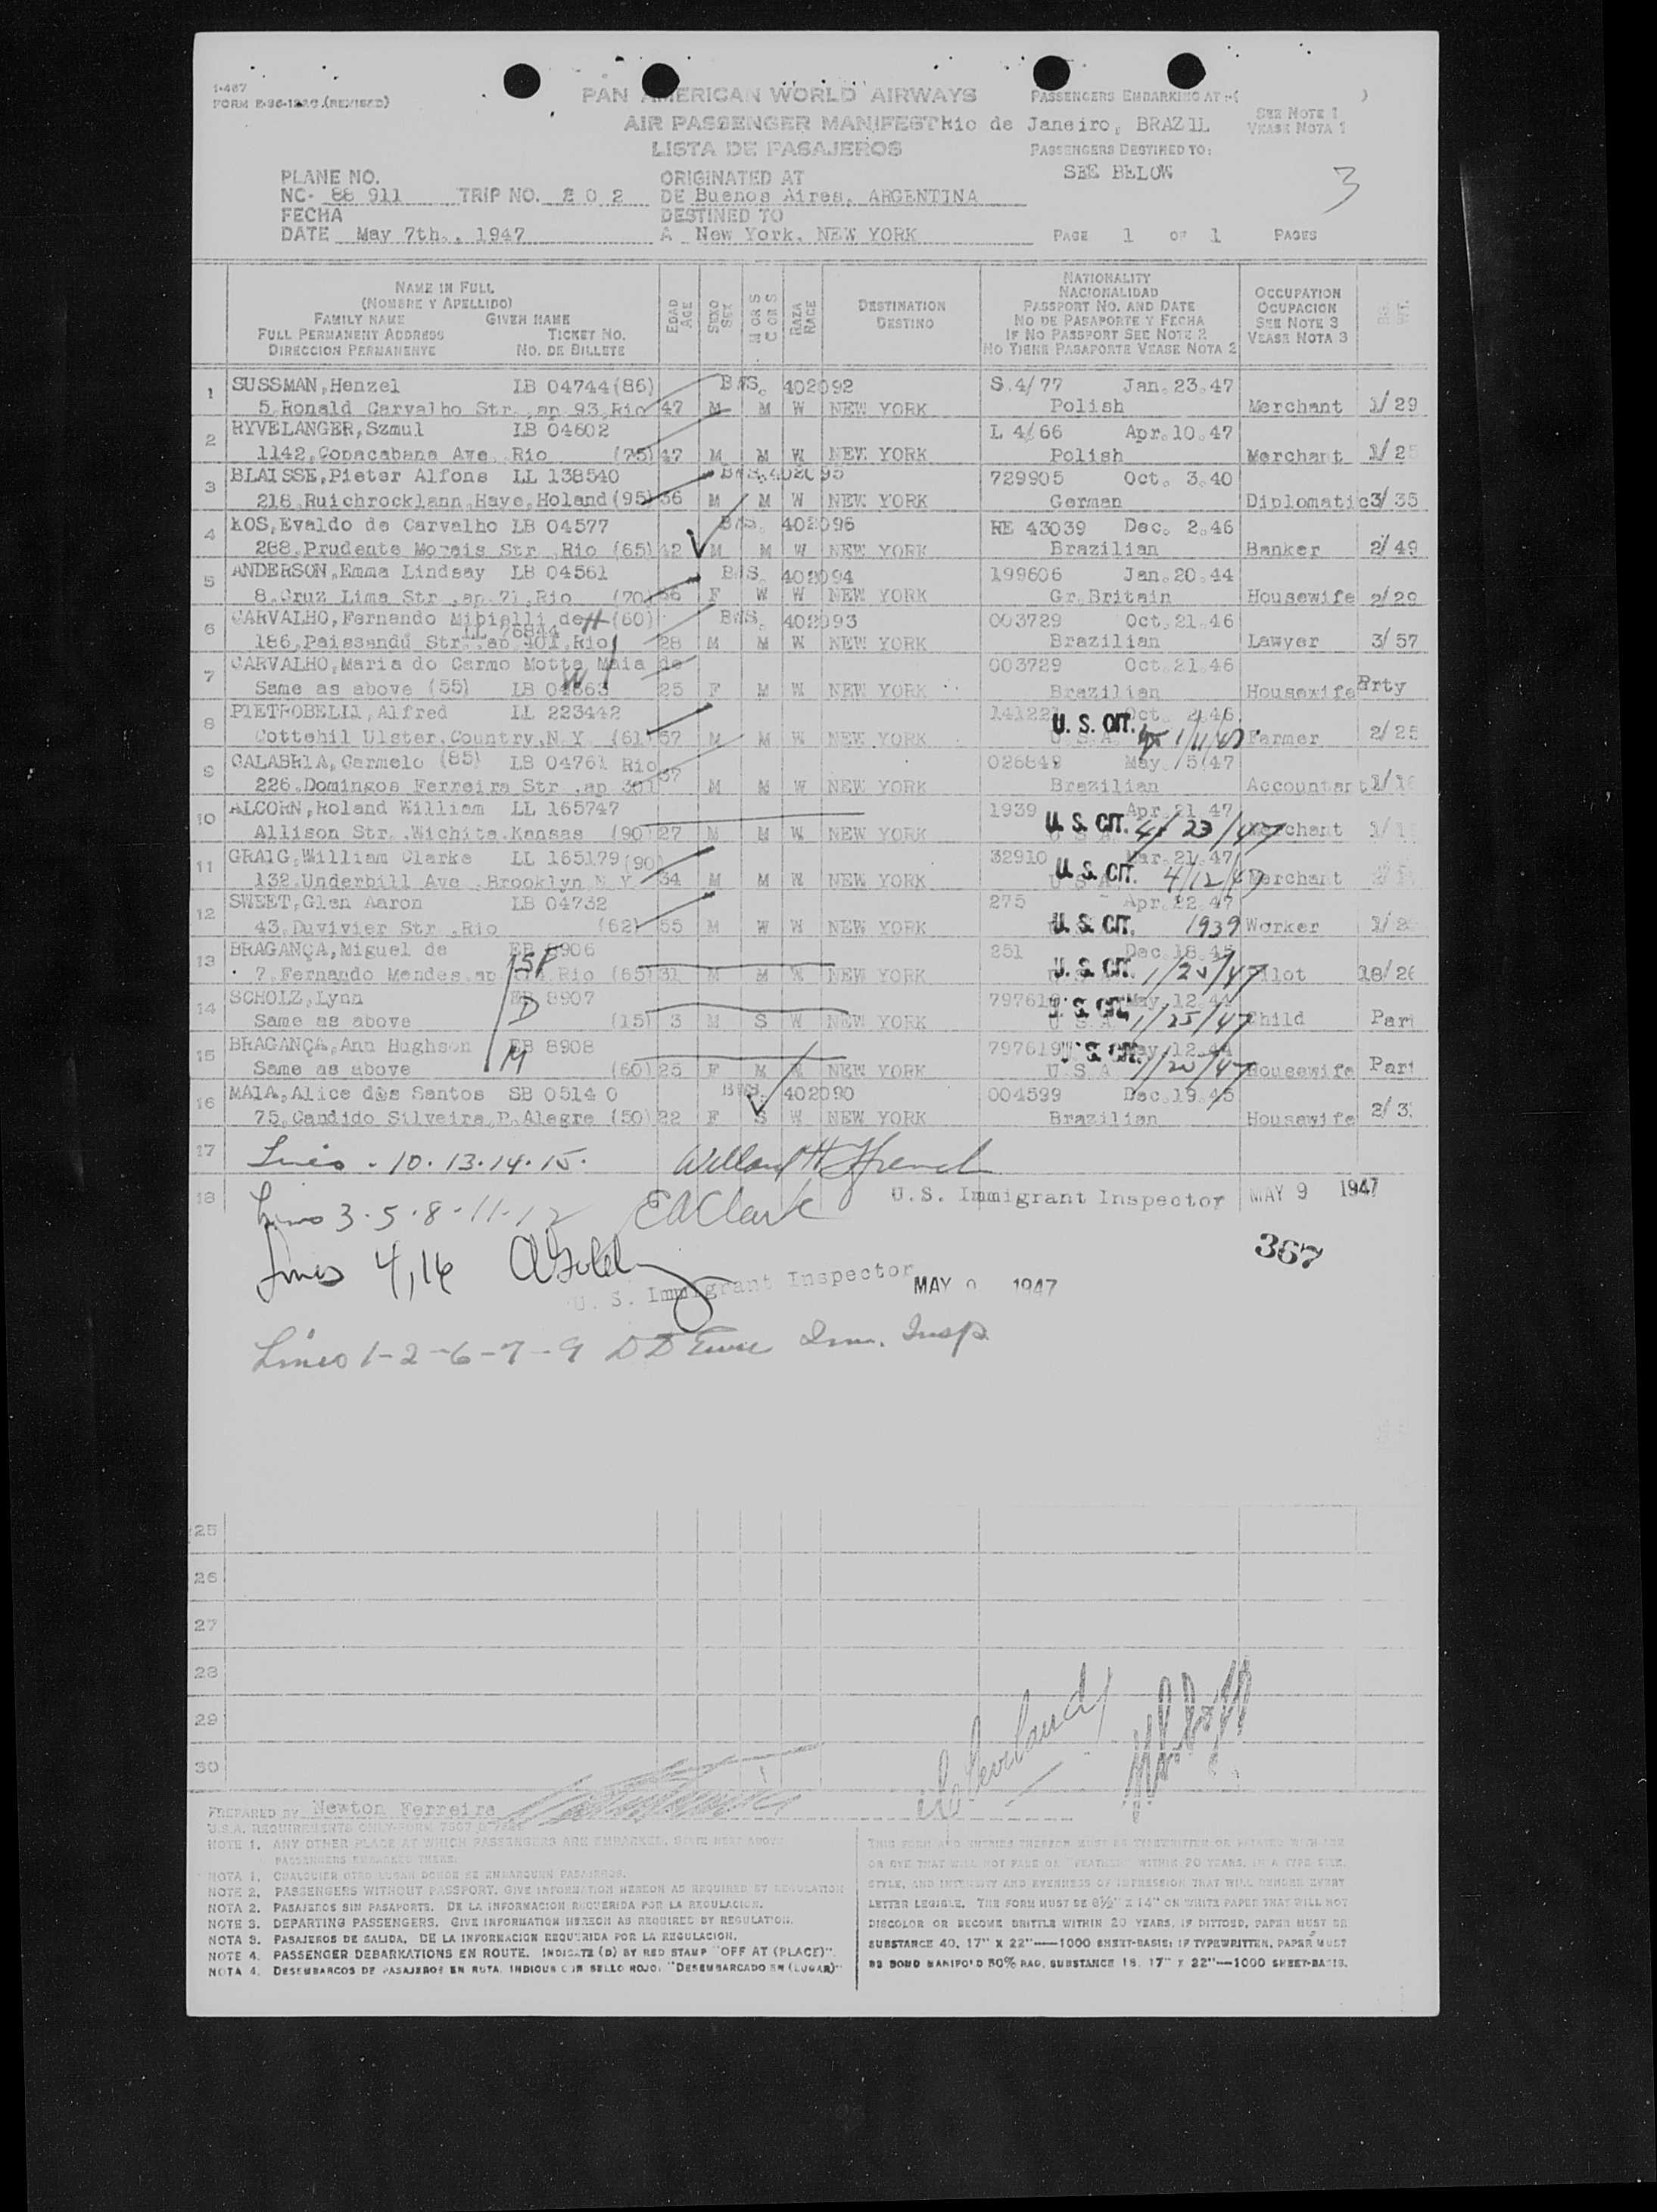 1-467
FORM E-96-1226.(REVISED)
PAN AMERICAN WORLD AIRWAYS
AIR PASSENGER MANIFEST
LISTA DE PASAJEROS
PASSENGERS EMBARKING AT :-( )
Rio de Janeiro, BRAZIL
SEE NOTE 1
VEASE NOTA 1
PASSENGERS DESTINED TO:
SEE BELOW
3
PLANE NO.
NC- 88 911 TRIP NO. 2 0 2
FECHA
DATE May 7th., 1947
ORIGINATED AT
DE Buenos Aires, ARGENTINA
DESTINED TO
A New York, NEW YORK
PAGE 1 OF 1 PAGES
NAME IN FULL
(NOMBRE Y APELLIDO)
FAMILY NAME GIVEN NAME
FULL PERMANENT ADDRESS TICKET NO.
DIRECCION PERMANENTE NO. DE BILLETE
EDAD AGE
SEXO SEX
M OR S
C OR S
RAZA RACE
DESTINATION
DESTINO
NATIONALITY
NACIONALIDAD
PASSPORT NO. AND DATE
NO DE PASAPORTE Y FECHA
IF NO PASSPORT SEE NOTE 2
NO TIENE PASAPORTE VEASE NOTA 2
OCCUPATION
OCUPACION
SEE NOTE 3
VEASE NOTA 3
1 SUSSMAN,Henzel LB 04744(86) BWS. 402092 S.4/77 Jan.23.47
5,Ronald Carvalho Str.,ap 93,Rio 47 M M W NEW YORK Polish Merchant 1/29
2 RYVELANGER,Szmul LB 04602 L 4/66 Apr.10.47
1142,Copacabana Ave. Rio (75) 47 M M W NEW YORK Polish Merchant 1/25
3 BLAISSE,Pieter Alfons LL 138540 BWS.402095 729905 Oct. 3.40
218,Ruichrocklann,Haye,Holand(95) 36 M M W NEW YORK German Diplomatic 3/35
4 KOS,Evaldo de Carvalho LB 04577 BWS. 402096 RE 43039 Dec. 2.46
288,Prudente Morais Str.,Rio (65) 42 M M W NEW YORK Brazilian Banker 2/49
5 ANDERSON,Emma Lindsay LB 04561 BWS. 402094 199606 Jan.20.44
8,Cruz Lima Str.,ap.71,Rio (70) 56 F W W NEW YORK Gr.Britain Housewife 2/29
6 CARVALHO,Fernando Mibielli de H (60) BWS. 402093 003729 Oct.21.46
LL 76844
186,Paissandú Str.,ap 401,Rio 28 M M W NEW YORK Brazilian Lawyer 3/57
7 CARVALHO,Maria do Carmo Motta Maia de 003729 Oct.21.46
Same as above (55) W LB 04663 25 F M W NEW YORK Brazilian Housewife Prty
8 PIETROBELLI,Alfred LL 223442 Oct. 2.46
Cottehil Ulster,Country,N.Y. (61) 57 M M W NEW YORK U.S.A. U. S. CIT. Farmer 2/25
9 CALABRIA,Carmelo (85) LB 04761 Rio 026849 May. 5(47
226,Domingos Ferreira Str.,ap 301 37 M M W NEW YORK Brazilian Accountant
10 ALCORN,Roland William LL 165747 1939 Apr.21.47
Allison Str.,Wichita,Kansas (90) 27 M M W NEW YORK U. S. CIT. 4/23/47 Merchant
11 GRAIG,William Clarke LL 165179(90) 32910 Mar.21.47
132,Underbill Ave.,Brooklyn N.Y. 34 M M W NEW YORK U. S. CIT. 4/12/47 Merchant
12 SWEET,Glen Aaron LB 04732 275 Apr.22.47
43,Duvivier Str.,Rio (62) 55 M W W NEW YORK U. S. CIT. 1939 Worker
13 BRAGANÇA,Miguel de EB 8906 251 Dec.18.45
7,Fernando Mendes,ap Rio (65) 31 M M W NEW YORK U. S. CIT. 1/20/47 Pilot 18/26
14 SCHOLZ,Lynn EB 8907 May.12.44
Same as above D (15) 3 M S W NEW YORK U.S.A. U. S. CIT. 1/25/47 Child Part
15 BRAGANÇA,Ann Hughson EB 8908 797619 May.12.44
Same as above M (60) 25 F M W NEW YORK U.S.A. U. S. CIT. 1/20/47 Housewife Part
16 MAIA,Alice dos Santos SB 0514 0 BWS. 402090 004599 Dec.19.45
75,Candido Silveira,P.Alegre (50) 22 F S W NEW YORK Brazilian Housewife
17 Lines . 10. 13. 14. 15. Willard H French
18 U.S. Immigrant Inspector MAY 9 1947
Lines 3. 5. 8. 11. 12 E A Clark
367
Lines 4, 16
U. S. Immigrant Inspector MAY 9 1947
Lines 1-2-6-7-9 Imm. Insp.
25
26
27
28
29
30
PREPARED BY Newton Ferreira
NOTE 1. ANY OTHER PLACE AT WHICH PASSENGERS ARE EMBARKED, STATE NEXT ABOVE
PASSENGERS EMBARKED THERE.
NOTA 1. CUALQUIER OTRO LUGAR DONDE SE EMBARQUEN PASAJEROS.
NOTE 2. PASSENGERS WITHOUT PASSPORT. GIVE INFORMATION HEREON AS REQUIRED BY REGULATION
NOTA 2. PASAJEROS SIN PASAPORTE. DE LA INFORMACION REQUERIDA POR LA REGULACION.
NOTE 3. DEPARTING PASSENGERS. GIVE INFORMATION HEREON AS REQUIRED BY REGULATION.
NOTA 3. PASAJEROS DE SALIDA. DE LA INFORMACION REQUERIDA POR LA REGULACION.
NOTE 4. PASSENGER DEBARKATIONS EN ROUTE. INDICATE (D) BY RED STAMP "OFF AT (PLACE)".
NOTA 4. DESEMBARCOS DE PASAJEROS EN RUTA. INDIQUE CON SELLO ROJO: "DESEMBARCADO EN (LUGAR)"
THIS FORM AND ENTRIES THEREON MUST BE TYPEWRITTEN OR PRINTED WITH INK
OR DYE THAT WILL NOT FADE OR "FEATHER" WITHIN 20 YEARS, IN A TYPE SIZE,
STYLE, AND INTENSITY AND EVENNESS OF IMPRESSION THAT WILL RENDER EVERY
LETTER LEGIBLE. THE FORM MUST BE 8½" X 14" ON WHITE PAPER THAT WILL NOT
DISCOLOR OR BECOME BRITTLE WITHIN 20 YEARS. IF DITTOED, PAPER MUST BE
SUBSTANCE 40, 17" X 22"—1000 SHEET-BASIS; IF TYPEWRITTEN, PAPER MUST
BE BOND MANIFOLD 50% RAG, SUBSTANCE 18, 17" X 22"—1000 SHEET-BASIS.